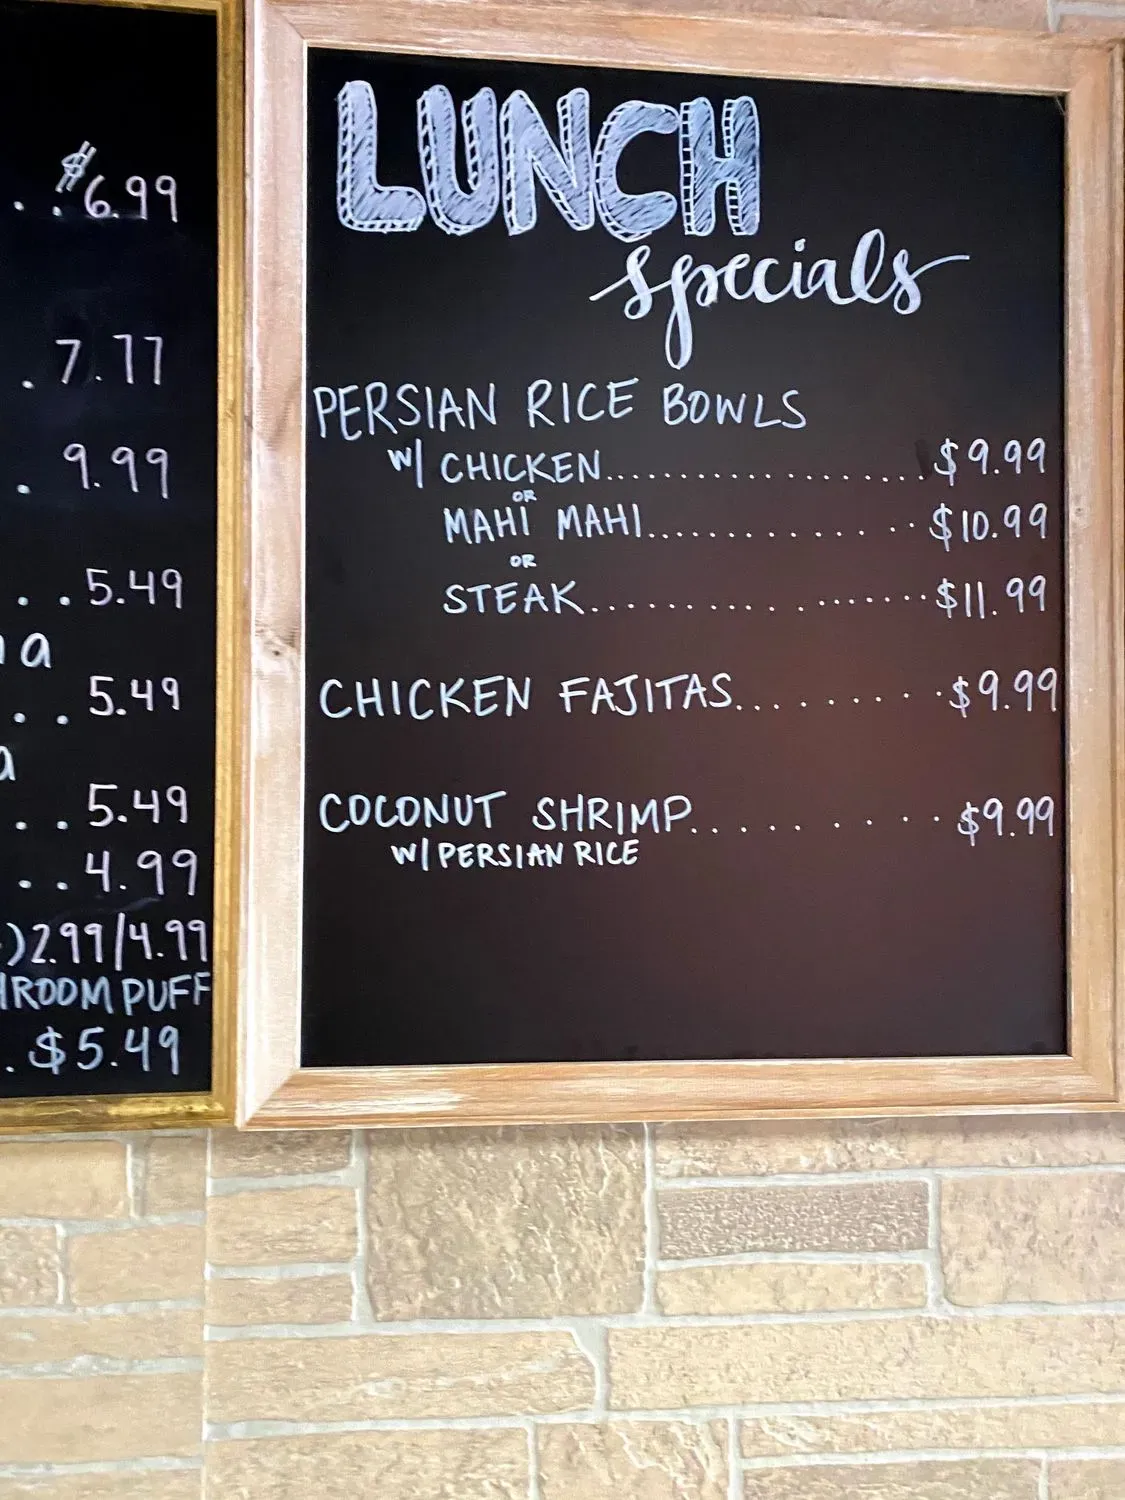 $6.99
7.77
9.99
5.49
a
5.49
a
5.49
4.99
)2.99/4.99
PUFF
$5.49
LUNCH
specials
PERSIAN RICE BOWLS
W/ CHICKEN.................... $9.99
OR
MAHI MAHI.............. $10.99
OR
STEAK.................... $11.99
CHICKEN FAJITAS......... $9.99
COCONUT SHRIMP.......... $9.99
W/ PERSIAN RICE